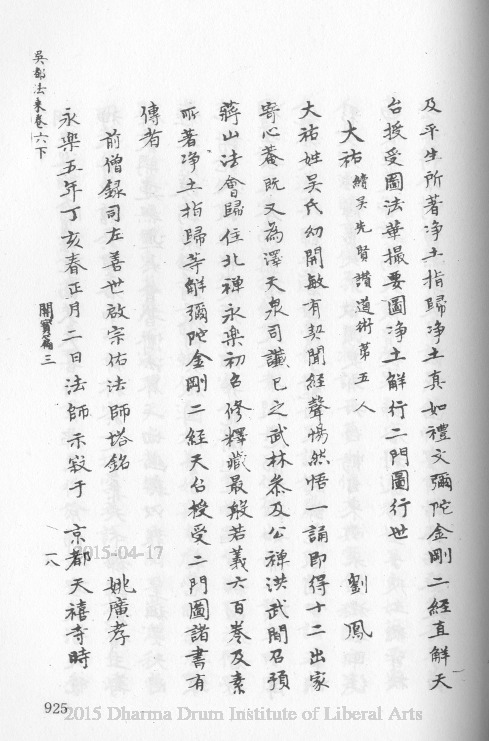 及平生所著净土指歸净土真如禮文彌陀金剛二經直解天
台授受圖法華撮要圖净土解行二門圖行世
大祐 續吳先賢讚道術第五人 劉鳳
大祐姓吳氏幼開敏有契聞經聲惕然悟一誦即得十二出家
寄心菴既又為澤天泉司讖已之武林叅及公禪洪武間召預
蔣山法會歸住北禪永樂初召修釋藏最般若義六百卷及素
所著净土指歸等解彌陀金剛二經天台授受二門圖諸書有
傳者
前僧録司左善世啟宗佑法師塔銘 姚廣孝
永樂五年丁亥春正月二日法師示寂于 京都天禧寺時
吳都法乘卷六下
開寶篇三
一八
925
2015-04-17
2015 Dharma Drum Institute of Liberal Arts